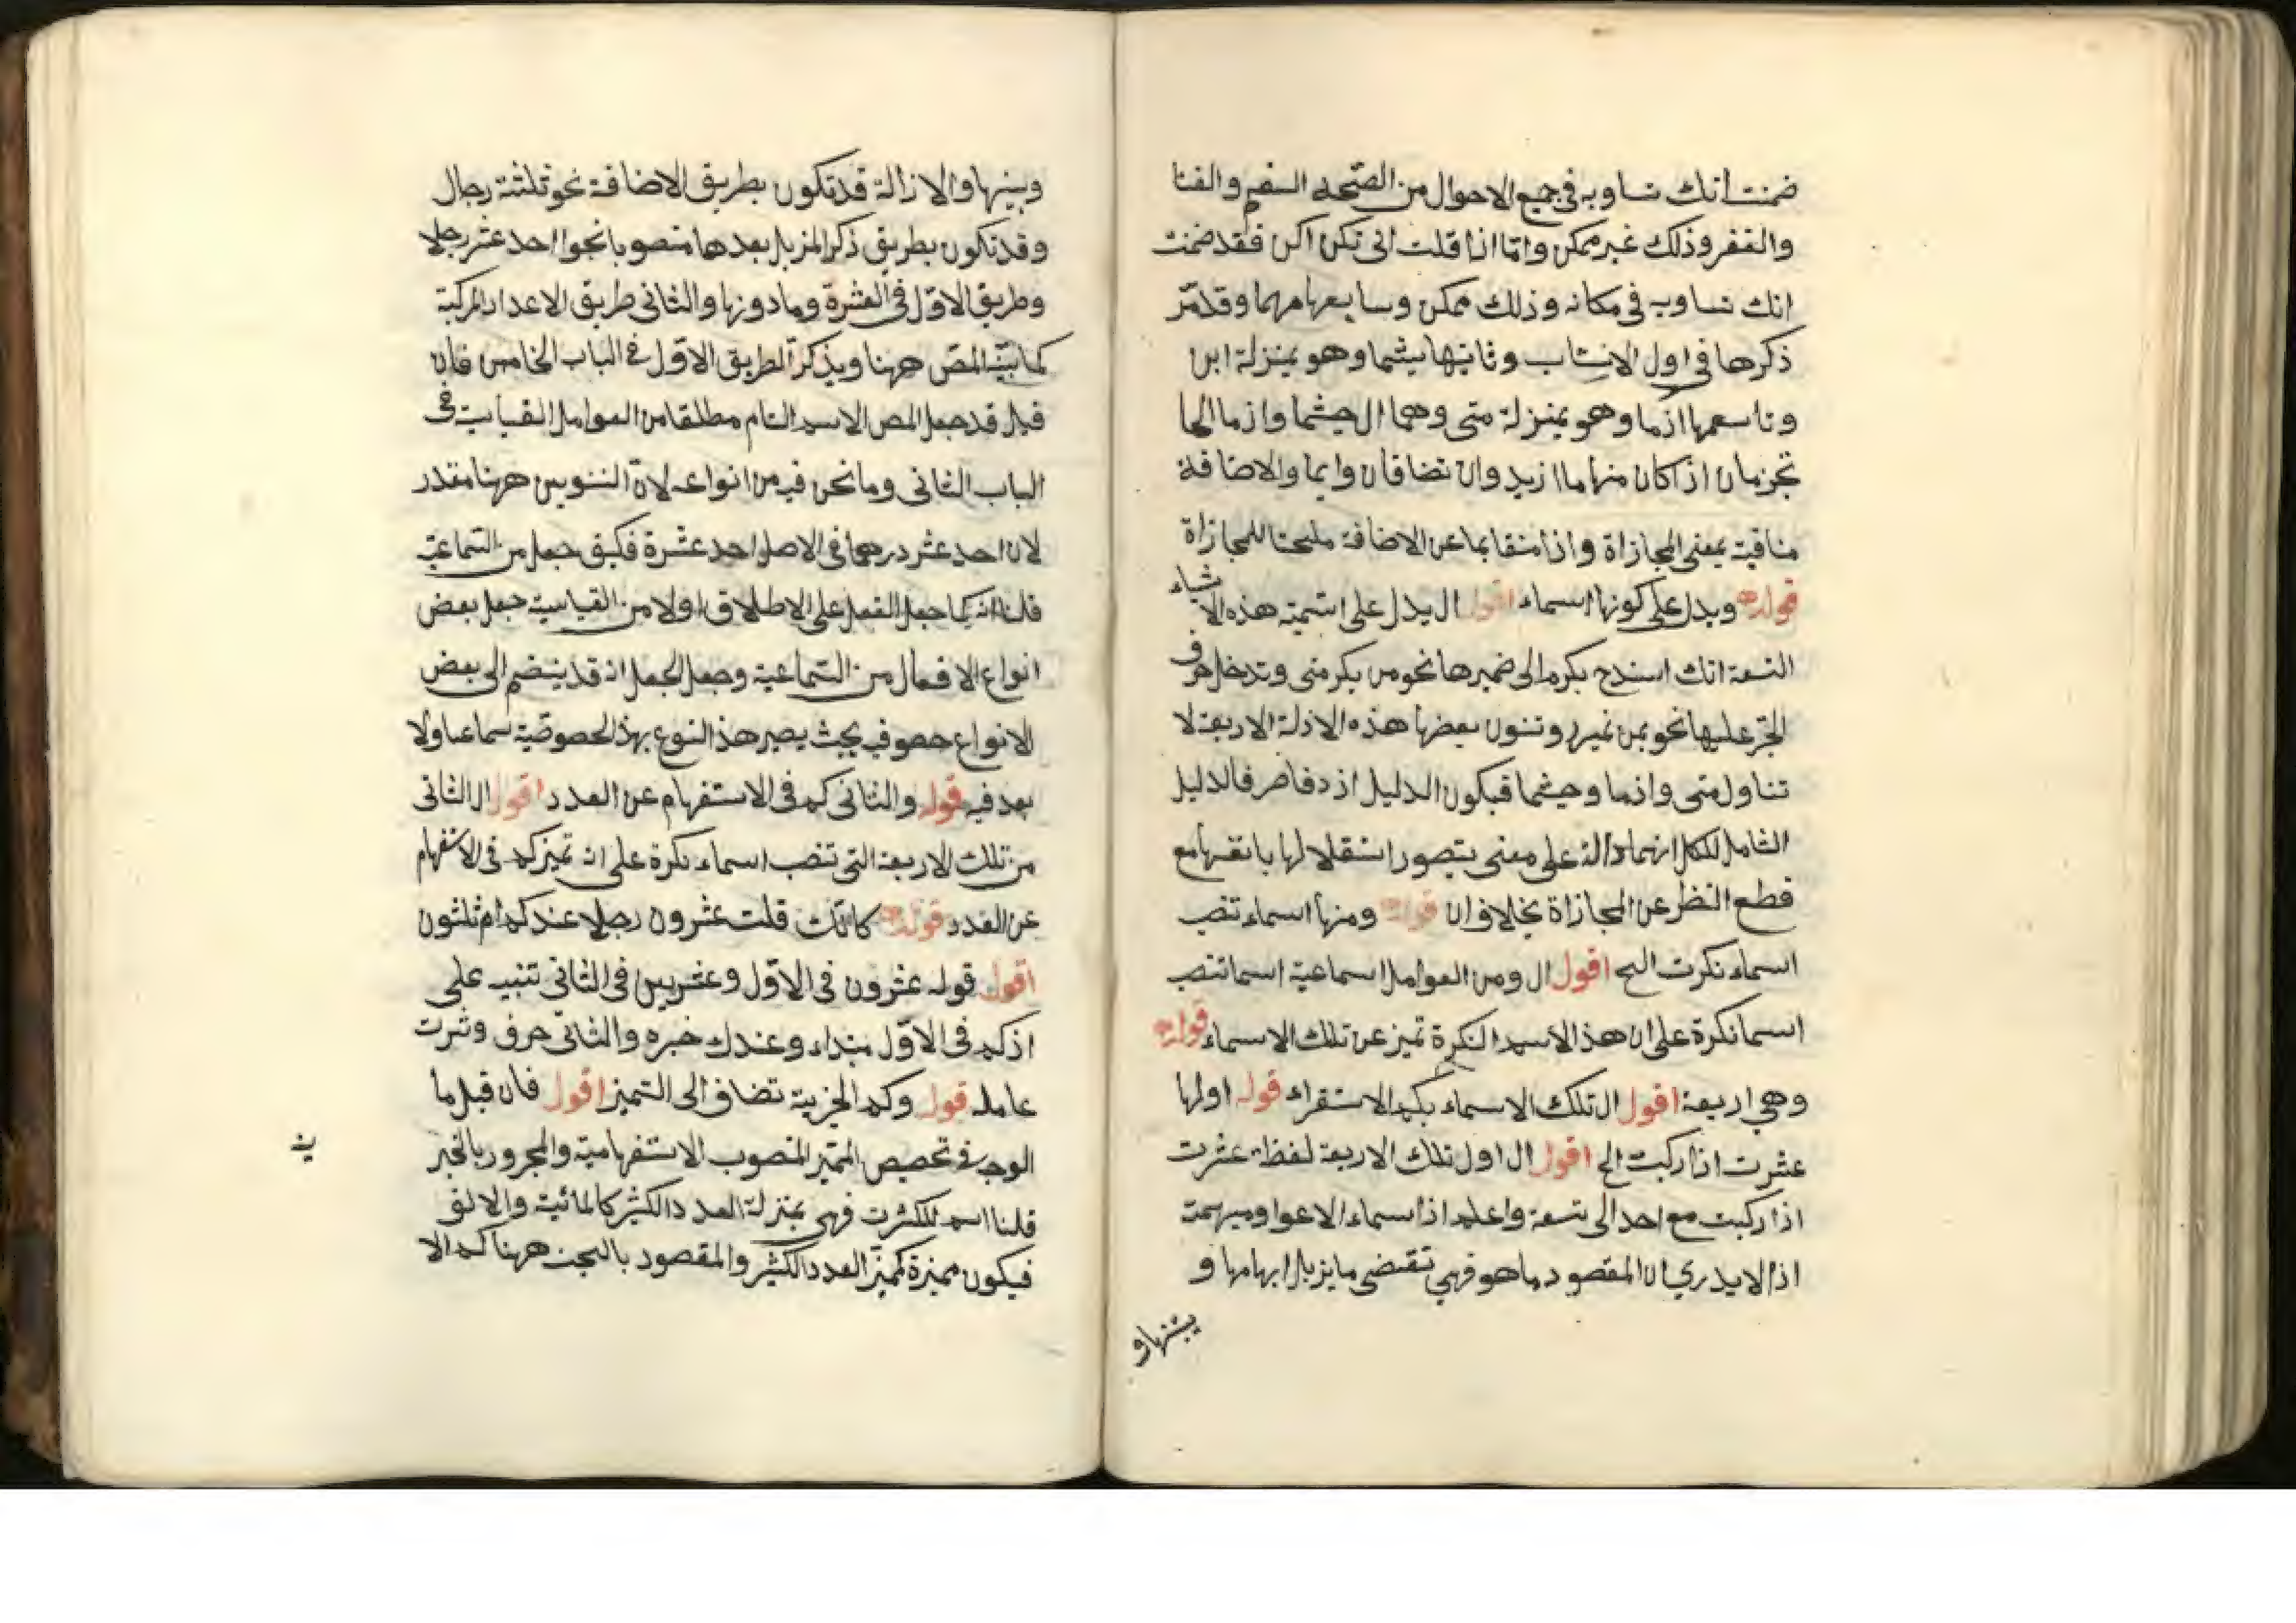 ضمنت انك تساويه في جميع الاحوال من الصحة السقم والغنا
والفقر وذلك غير ممكن واما اذا قلت انى تكن اكن فقد ضمنت
انك تساويه في مكانه وذلك ممكن وسابعها مهما وقد مر
ذكرها في اول وثانيها حيثما وهو بمنزلة اين
وتاسعها اذما وهو بمنزلة متى وهما ال حيثما واذما انما
تجزمان اذا كان منهما ما ازيد وان تضافان وايما والاضافة
منافية بمعنى المجازاة واذا منقا بما عن الاضافة للمجازاة
قوله ويدل على كونها اسماء اقول ال يدل على اسمية هذه الاشياء
التسعة انك اسندح بكرم الى ضميرها نحو من يكرمنى وتدخل حرف
الجر عليها نحو بمن تمرر وتنون بعضها هذه الادلة الاربعة لا
تناول متى واذما وحيثما فيكون الدليل اذ دقاصر فالدليل
الشامل للكل انهما دالة على معنى يتصور استقلالها بانفسها مع
قطع النظر عن المجازاة بخلاف ان قوله ومنها اسماء تنصب
اسماء نكرت الح اقول ال ومن العوامل اسماعية اسما تنصب
اسما نكرة على ان هذا الاسم النكرة تميز عن تلك الاسماء قوله
وهي اربعة اقول ال تلك الاسماء بكم الاستقراء قوله اولها
عشرت اذا ركبت الح اقول ال اول تلك الاربعة لفظة عشرت
اذا ركبت مع احد الى تسعة واعلم اذ اسماء الاعداد مبهمة
اذ الا يدري ان المقصود ما هو فهي تقتضى ما يزيل ابهامها و
بينها و
وبينها والازالة قد تكون بطريق الاضافة نحو ثلثة رجال
وقد تكون بطريق ذكر المزيل بعدها منصوبا نحو احد عشر رجلا
وطريق الاول في العشرة وما دونها والثاني طريق الاعداد المركبة
كما بينه المص ههنا ويذكر الطريق الاول في الباب الخامس فان
قيل قد جعل المص الاسم التام مطلقا من العوامل القياسية في
الباب الثاني وما نحن فيه من انواعه لان التنوين ههنا مقدر
لان احد عشر درهما في الاصل احد عشرة فكيف جعل من السماعية
قلنا انه كما جعل الفعل على الاطلاق اولا من القياسية جعل بعض
انواع الافعال من السماعية وجعل الجعل انه قد ينضم الى بعض
الانواع حصو فيه بحيث يصير هذ النوع بهذ الحصوصية سماعيا ولا
بعد فيه قوله والثاني كم في الاستفهام عن العدد اقول ال الثانى
من تلك الاربعة التى تنصب اسماء نكرة على انه تميز كم في الاستفهام
عن العدد قوله كانك قلت عشرون رجلا عندك ام ثلثون
اقول قوله عشرون في الاول وعشرين في الثاني تنبيه على
اذ كم في الاول مبتداء وعندك خبره والثاني حرف وثرت
عامله قوله وكم الخبرية تضاف الى التميز اقول فان قيل ما
الوجه في تحصيص المميز المنصوب الاستفهامية والمجرور بالخبر
قلنا اسم للكثرت فهى بمنزلة العدد الكثير كالمائية والالف
فيكون مميزة كمميز العدد الكثير والمقصود بالبحث ههنا كم الا
ية